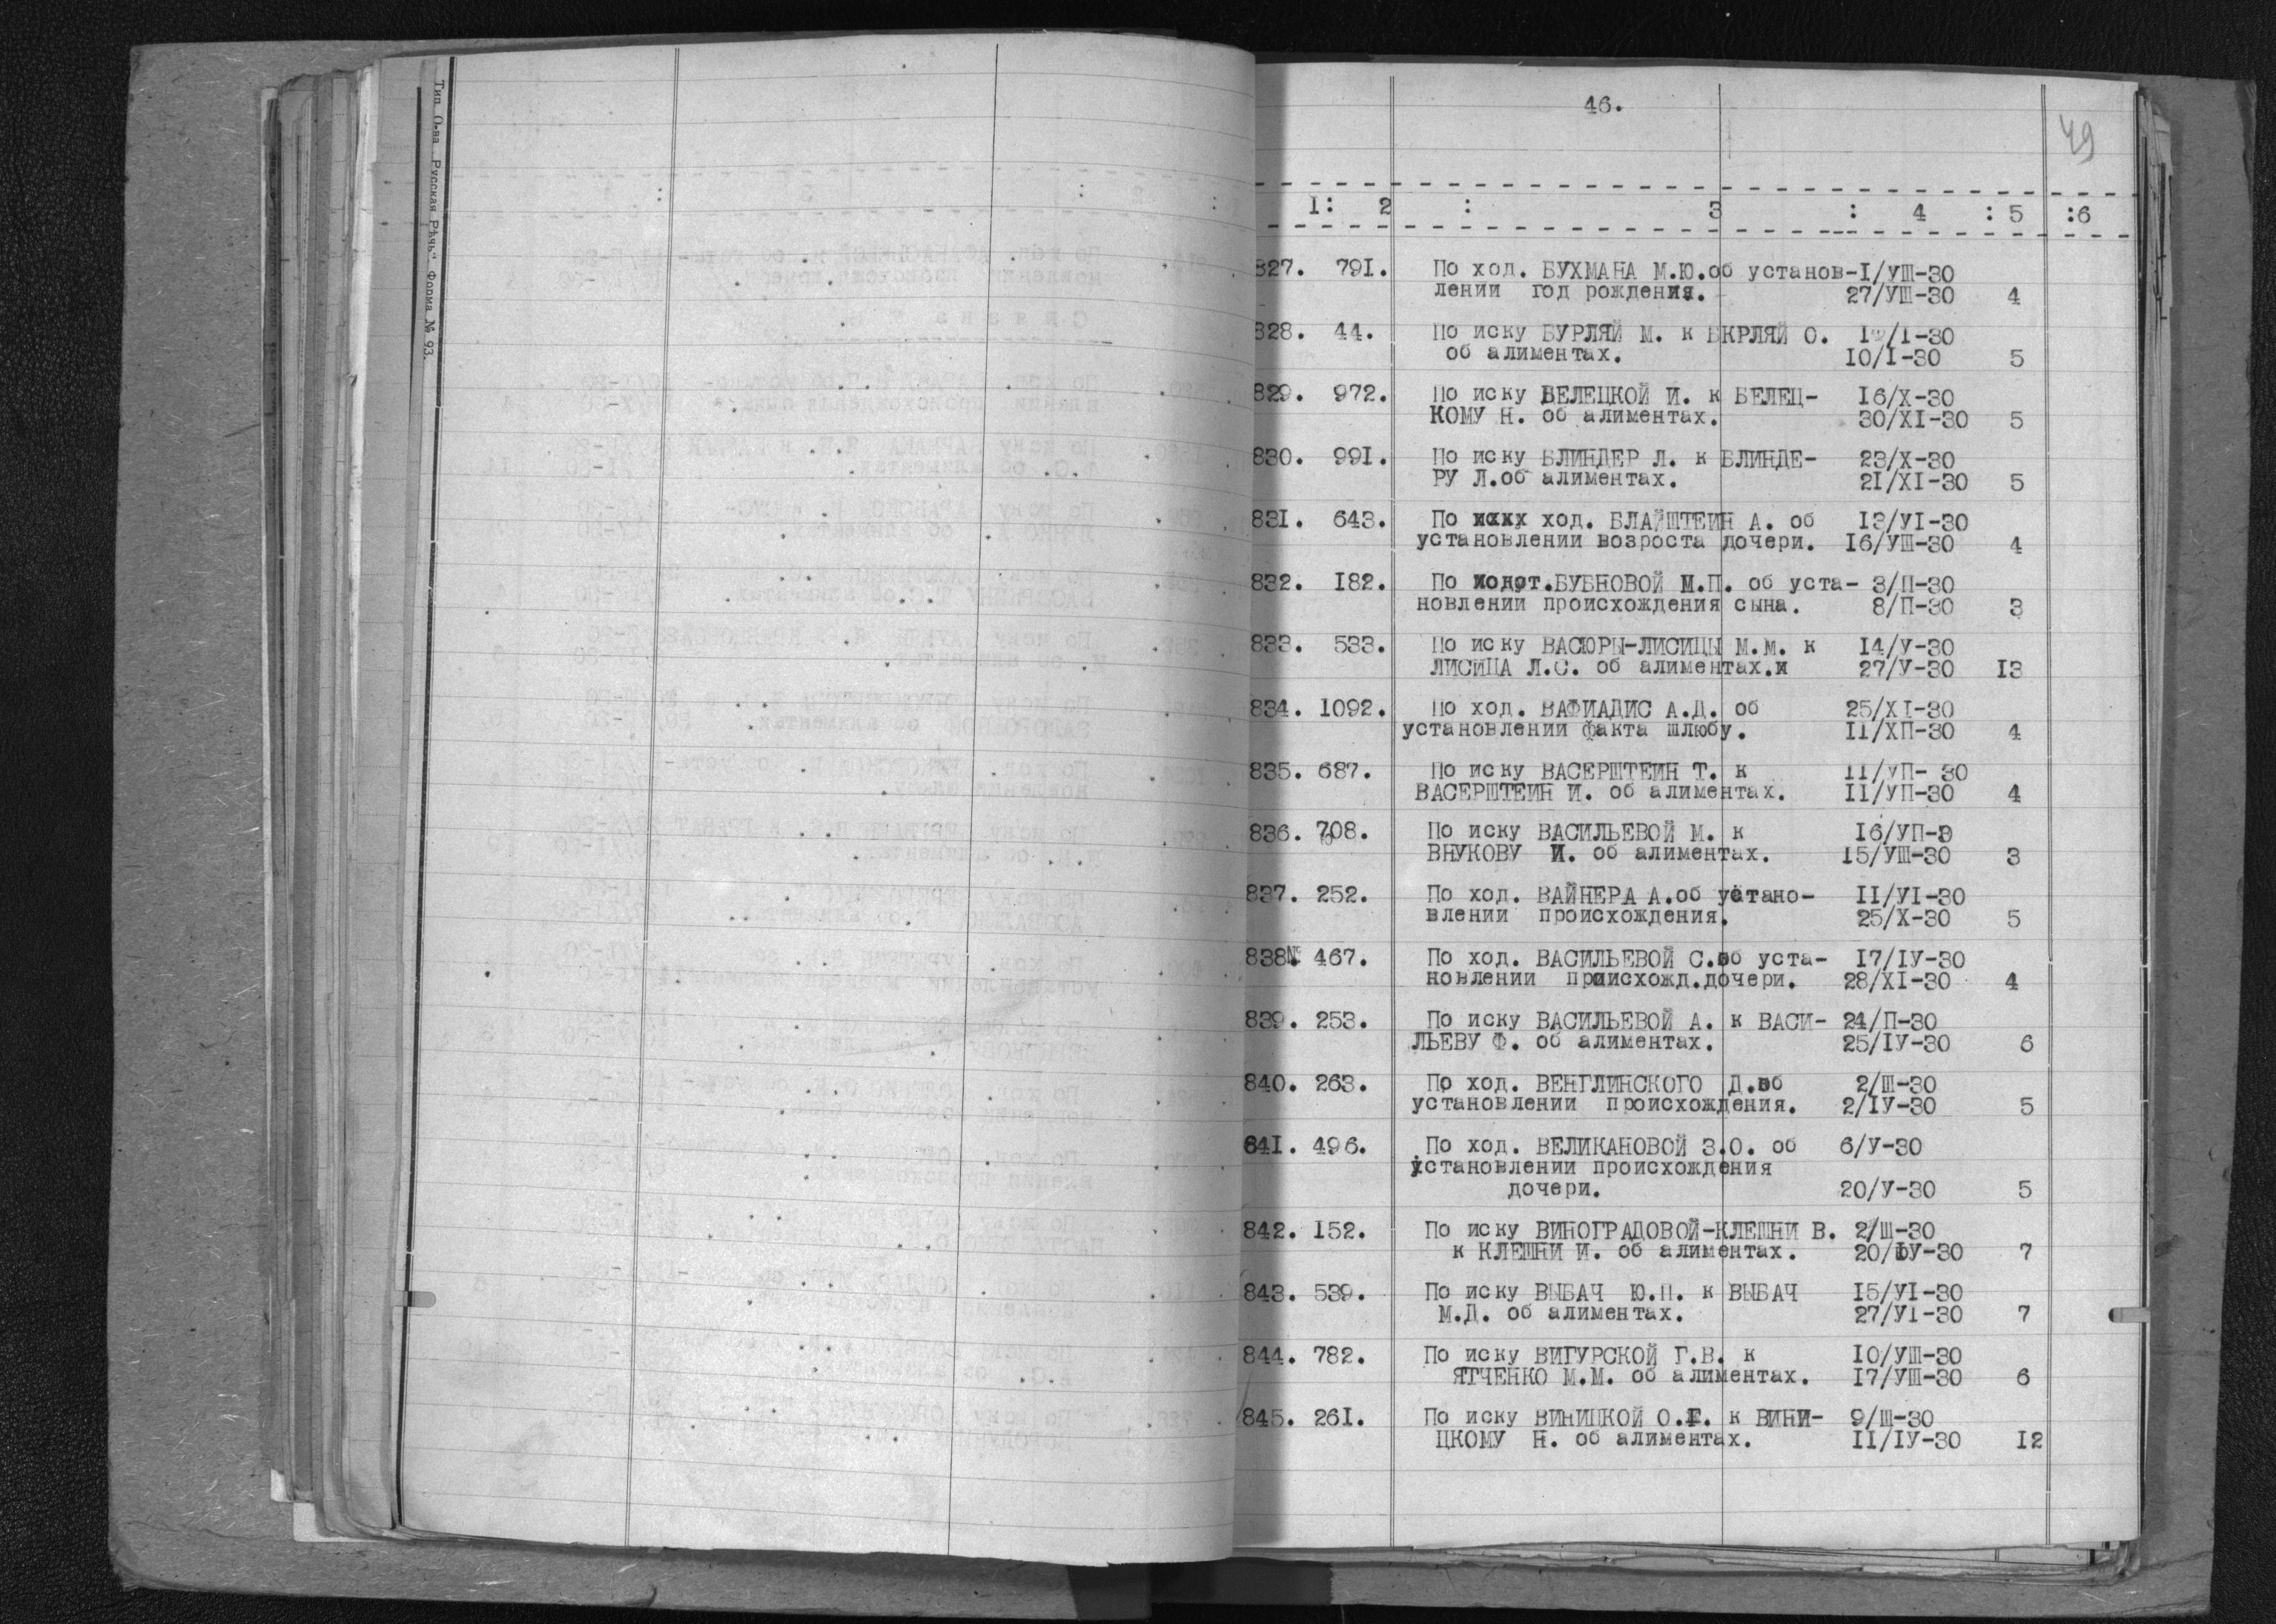 Тип О-ва „Русская Рѣчь“ Форма № 93.
46.
49
1: 2 : 3 : 4 : 5 :6
827. 791. По ход. БУХМАНА М.Ю.об установ-I/УШ-30
лении год рождения. 27/УШ-30 4
828. 44. По иску БУРЛЯЙ М. к БКРЛЯЙ О. /I-30
об алиментах. IO/I-30 5
829. 972. По иску БЕЛЕЦКОЙ И. к БЕЛЕЦ- I6/X-30
КОМУ Н. об алиментах. 30/XI-30 5
830. 99I. По иску БЛИНДЕР Л. к БЛИНДЕ- 23/X-30
РУ Л.об алиментах. 2I/XI-30 5
83I. 643. По ход. БЛАЙШТЕИН А. об I3/УI-30
установлении возроста дочери. I6/УШ-30 4
832. I82. По ходот.БУБНОВОЙ М.П. об уста- 3/П-30
новлении происхождения сына. 8/П-30 3
833. 533. По иску ВАСЮРЫ-ЛИСИЦЫ М.М. к I4/У-30
ЛИСИЦА Л.С. об алиментах.и 27/У-30 I3
834. I092. По ход. ВАФИАДИС А.Д. об 25/XI-30
установлении факта шлюбу. II/ХП-30 4
835. 687. По иску ВАСЕРШТЕИН Т. к II/УП- 30
ВАСЕРШТЕИН И. об алиментах. II/УП-30 4
836. 708. По иску ВАСИЛЬЕВОЙ М. к I6/УП-Э
ВНУКОВУ И. об алиментах. I5/УШ-30 3
837. 252. По ход. ВАЙНЕРА А.об устано- II/УI-30
влении происхождения. 25/X-30 5
838№ 467. По ход. ВАСИЛЬЕВОЙ С.об уста- I7/IУ-30
новлении приисхожд.дочери. 28/XI-30 4
839. 253. По иску ВАСИЛЬЕВОЙ А. к ВАСИ- 24/П-30
ЛЬЕВУ Ф. об алиментах. 25/IУ-30 6
840. 263. По ход. ВЕНГЛИНСКОГО Д.об 2/Ш-30
установлении происхождения. 2/IУ-30 5
64I. 496. По ход. ВЕЛИКАНОВОЙ З.О. об 6/У-30
установлении происхождения
дочери. 20/У-30 5
842. I52. По иску ВИНОГРАДОВОЙ-КЛЕШНИ В. 2/Ш-30
к КЛЕШНИ И. об алиментах. 20/IУ-30 7
843. 539. По иску ВЫБАЧ Ю.П. к ВЫБАЧ I5/УI-30
М.Д. об алиментах. 27/УI-30 7
844. 782. По иску ВИГУРСКОЙ Г.В. к IO/УШ-30
ЯТЧЕНКО М.М. об алиментах. I7/УШ-30 6
845. 26I. По иску ВИНИЦКОЙ О.Г. к ВИНИ- 9/Ш-30
ЦКОМУ Н. об алиментах. II/IУ-30 I2